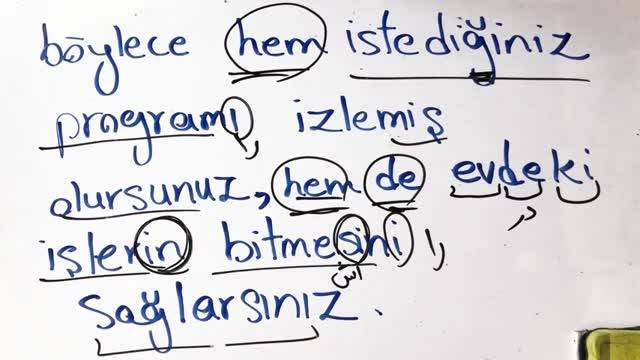 böylece hem istediğiniz
programı, izlemiş
olursunuz, hem de evdeki
در
işlerin bitmesini را
اش
sağlarsınız.